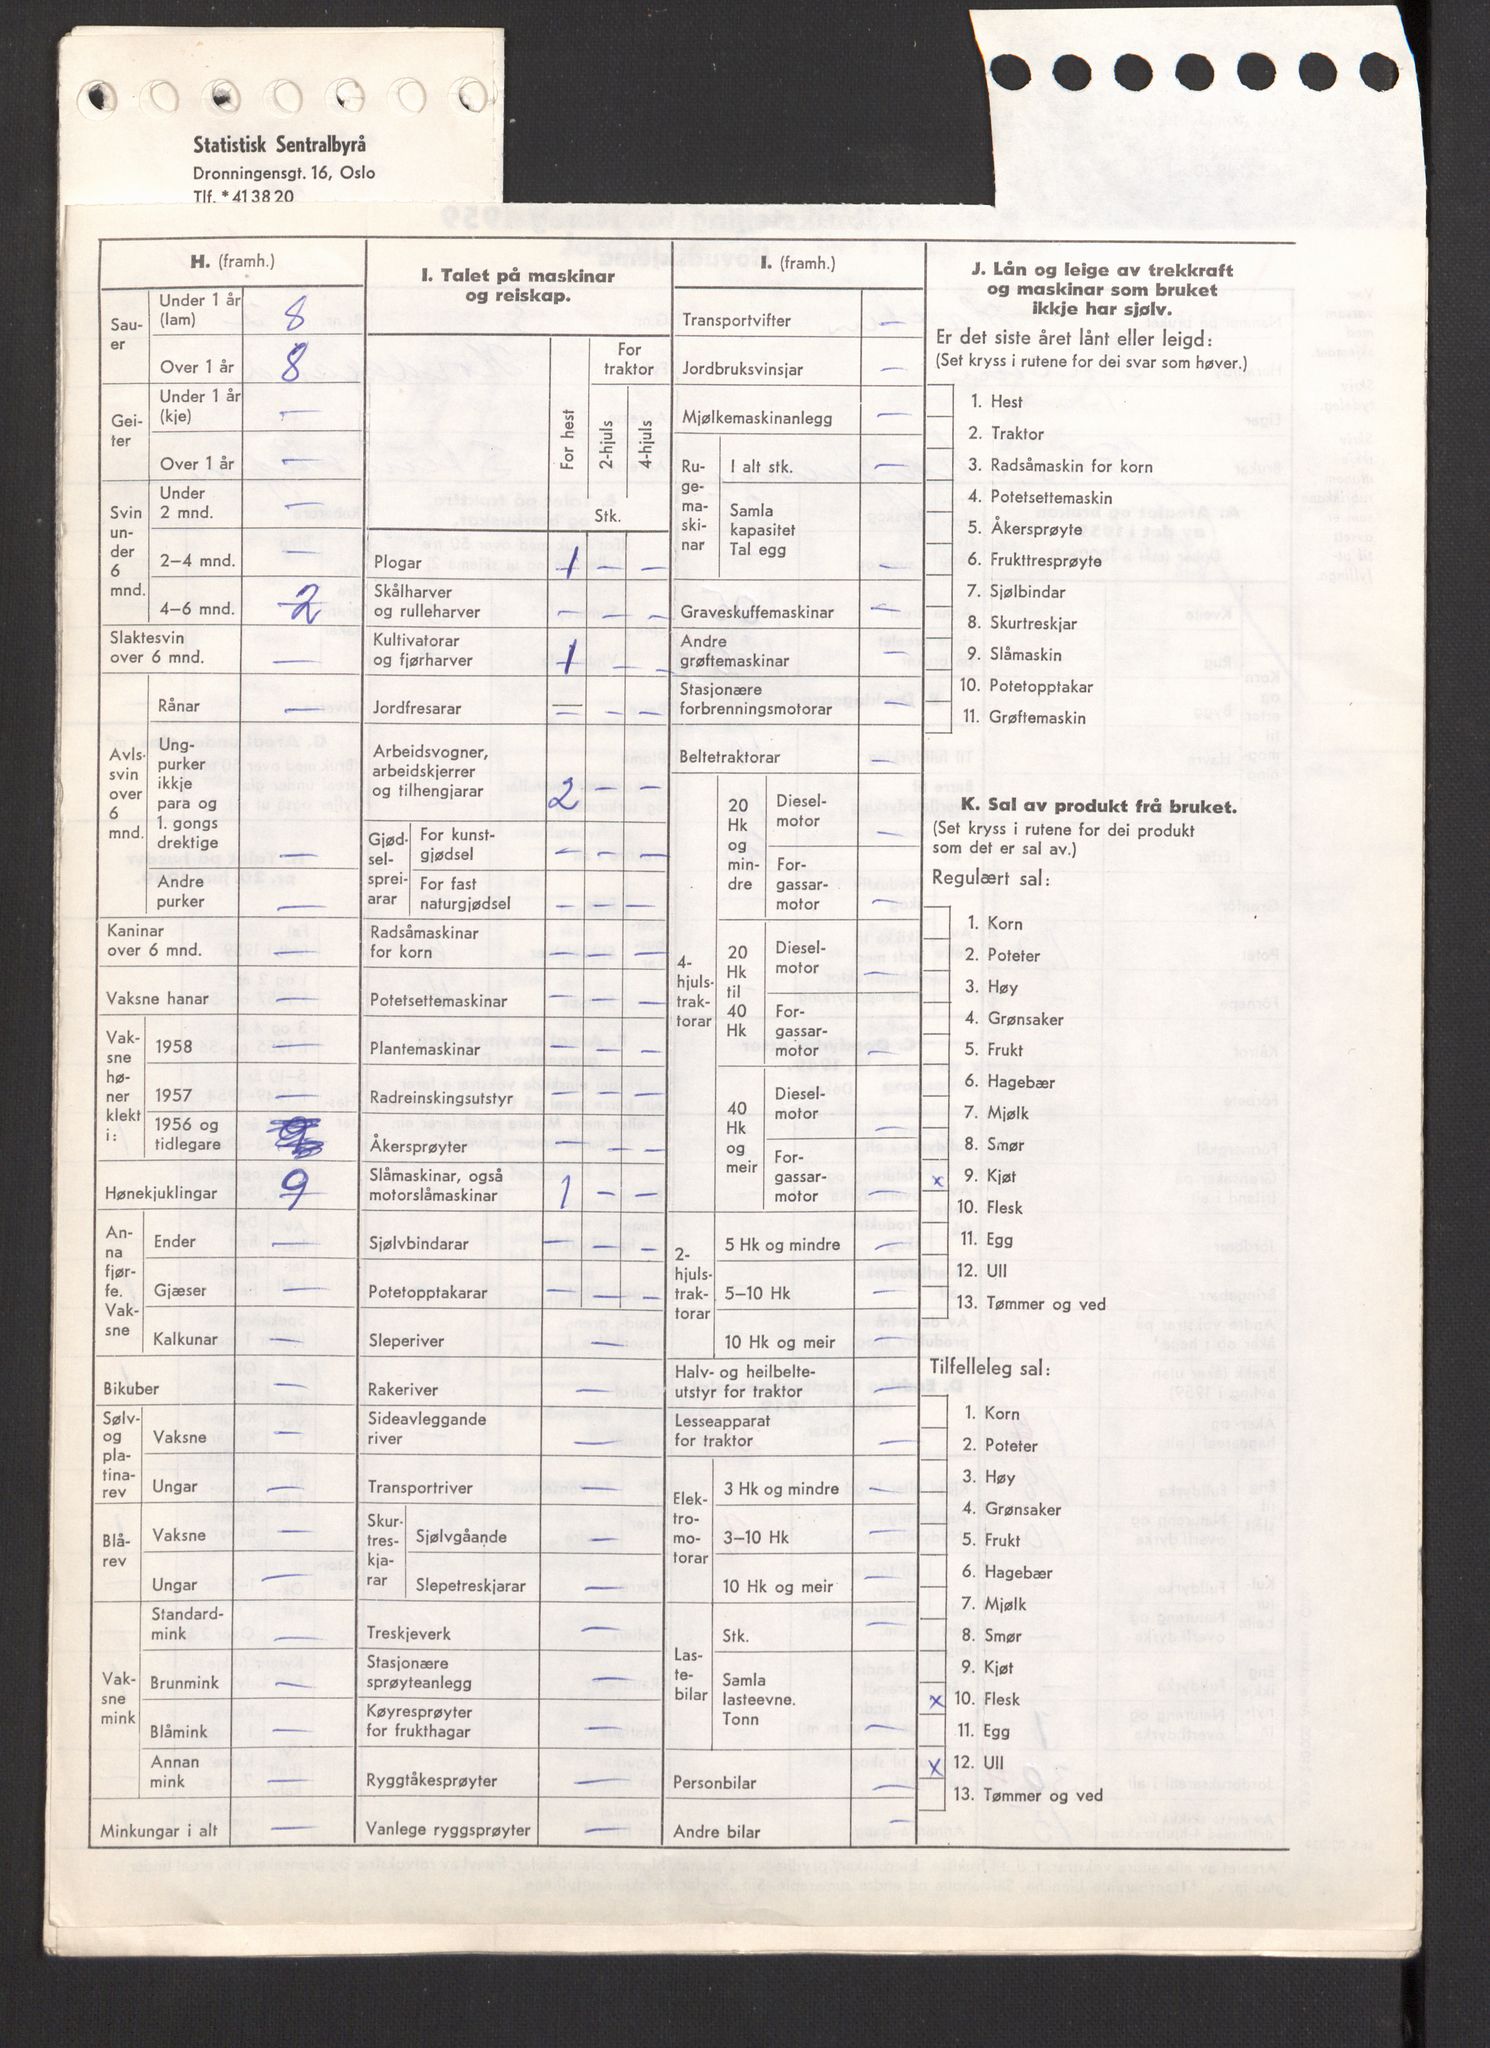 Statistisk Sentralbyrå
Dronningensgt. 16, Oslo
Tlf. * 41 38 20
H. (framh.)
Sauer
Under 1 år (lam) 8
Over 1 år 8
Geiter
Under 1 år (kje) —
Over 1 år —
Svin under 6 mnd.
Under 2 mnd. —
2–4 mnd. —
4–6 mnd. 2
Slaktesvin over 6 mnd. —
Avlssvin over 6 mnd.
Rånar —
Ungpurker ikkje para og 1. gongs drektige —
Andre purker —
Kaninar over 6 mnd. —
Vaksne hanar —
Vaksne høner klekt i:
1958 —
1957 —
1956 og tidlegare
Hønekjuklingar 9
Anna fjørfe. Vaksne
Ender —
Gjæser —
Kalkunar —
Bikuber —
Sølv- og platinarev
Vaksne —
Ungar —
Blårev
Vaksne —
Ungar —
Vaksne mink
Standardmink —
Brunmink —
Blåmink —
Annan mink —
Minkungar i alt —
I. Talet på maskinar
og reiskap.
For hest
For traktor
2-hjuls
4-hjuls
Stk.
Plogar 1 — —
Skålharver og rulleharver — — —
Kultivatorar og fjørharver 1 — —
Jordfresarar — — —
Arbeidsvogner, arbeidskjerrer og tilhengjarar 2 — —
Gjødselspreiarar
For kunstgjødsel — — —
For fast naturgjødsel — — —
Radsåmaskinar for korn — — —
Potetsettemaskinar — — —
Plantemaskinar — — —
Radreinskingsutstyr — — —
Åkersprøyter — — —
Slåmaskinar, også motorslåmaskinar 1 — —
Sjølvbindarar — — —
Potetopptakarar — — —
Sleperiver —
Rakeriver —
Sideavleggande river —
Transportriver —
Skurtreskjarar
Sjølvgåande —
Slepetreskjarar —
Treskjeverk —
Stasjonære sprøyteanlegg —
Køyresprøyter for frukthagar —
Ryggtåkesprøyter —
Vanlege ryggsprøyter —
I. (framh.)
Transportvifter —
Jordbruksvinsjar —
Mjølkemaskinanlegg —
Rugemaskinar
I alt stk. —
Samla kapasitet Tal egg —
Graveskuffemaskinar —
Andre grøftemaskinar —
Stasjonære forbrenningsmotorar —
Beltetraktorar —
4-hjulstraktorar
20 Hk og mindre
Dieselmotor —
Forgassarmotor —
20 Hk til 40 Hk
Dieselmotor —
Forgassarmotor —
40 Hk og meir
Dieselmotor —
Forgassarmotor —
2-hjulstraktorar
5 Hk og mindre —
5–10 Hk —
10 Hk og meir —
Halv- og heilbelteutstyr for traktor —
Lesseapparat for traktor —
Elektromotorar
3 Hk og mindre —
3–10 Hk —
10 Hk og meir —
Lastebilar
Stk. —
Samla lasteevne. Tonn —
Personbilar —
Andre bilar —
J. Lån og leige av trekkraft
og maskinar som bruket
ikkje har sjølv.
Er det siste året lånt eller leigd:
(Set kryss i rutene for dei svar som høver.)
1. Hest
2. Traktor
3. Radsåmaskin for korn
4. Potetsettemaskin
5. Åkersprøyte
6. Frukttresprøyte
7. Sjølbindar
8. Skurtreskjar
9. Slåmaskin
10. Potetopptakar
11. Grøftemaskin
K. Sal av produkt frå bruket.
(Set kryss i rutene for dei produkt
som det er sal av.)
Regulært sal:
1. Korn
2. Poteter
3. Høy
4. Grønsaker
5. Frukt
6. Hagebær
7. Mjølk
8. Smør
x 9. Kjøt
10. Flesk
11. Egg
12. Ull
13. Tømmer og ved
Tilfelleleg sal:
1. Korn
2. Poteter
3. Høy
4. Grønsaker
5. Frukt
6. Hagebær
7. Mjølk
8. Smør
9. Kjøt
x 10. Flesk
11. Egg
x 12. Ull
13. Tømmer og ved